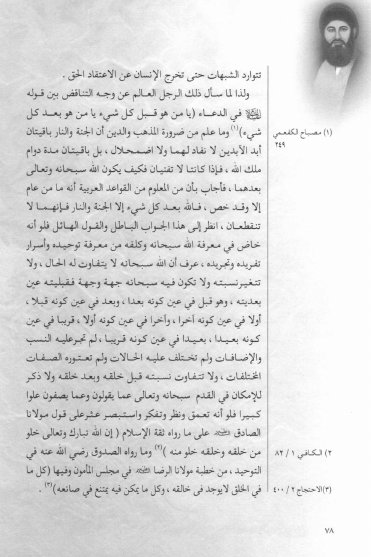 تتوارد الشبهات حتى تخرج الإنسان عن الاعتقاد الحق .
ولذا لما سأل ذلك الرجل العالم عن وجه التناقض بين قوله
في الدعاء (يا من هو قبل كل شيء يا من هو بعد كل
شيء)(١) وما علم من ضرورة المذهب والدين أن الجنة والنار باقيتان
أبد الآبدين لا نفاد لهما ولا اضمحلال ، بل باقيتان مدة دوام
ملك الله ، فإذا كانتا لا تفنيان فكيف يكون الله سبحانه وتعالى
بعدهما ، فأجاب بأن من المعلوم من القواعد العربية أنه ما من عام
إلا وقد خص ، فالله بعد كل شيء إلا الجنة والنار فإنهما لا
تنقطعان ، انظر إلى هذا الجواب الباطل والقول الهائل فلو أنه
خاض في معرفة الله سبحانه وكلفه من معرفة توحيده وأسرار
تفريده وتجريده ، عرف أن الله سبحانه لا يتفاوت له الحال ، ولا
تتغير نسبته ولا تكون فيه سبحانه جهة وجهة فقبليته عين
بعديته ، وهو قبل في عين كونه بعدا ، وبعد في عين كونه قبلا ،
أولا في عين كونه آخرا ، وآخرا في عين كونه أولا ، قريبا في عين
كونه بعيدا ، بعيدا في عين كونه قريبا ، لم تجر عليه النسب
والإضافات ولم تختلف عليه الحالات ولم تعتوره الصفات
المختلفات ، ولا تتفاوت نسبته قبل خلقه وبعد خلقه ولا ذكر
للإمكان في القدم سبحانه وتعالى عما يقولون وعما يصفون علوا
كبيرا فلو أنه تعمق ونظر وتفكر واستبصر عثر على قول مولانا
الصادق على ما رواه ثقة الإسلام ( إن الله تبارك وتعالى خلو
من خلقه وخلقه خلو منه )(٢) وما رواه الصدوق رضي الله عنه في
التوحيد ، من خطبة مولانا الرضا في مجلس المأمون وفيها (كل ما
في الخلق لا يوجد في خالقه ، وكل ما يمكن فيه يمتنع في صانعه)(٣) .
(١) مصباح الكفعمي
٢٤٩
٢) الكافي ١ / ٨٢
(٣) الاحتجاج ٢ / ٤٠٠
٧٨